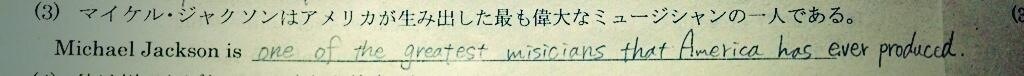 (3) マイケル・ジャクソンはアメリカが生み出した最も偉大なミュージシャンの一人である。
Michael Jackson is one of the greatest misicians that America has ever produced.